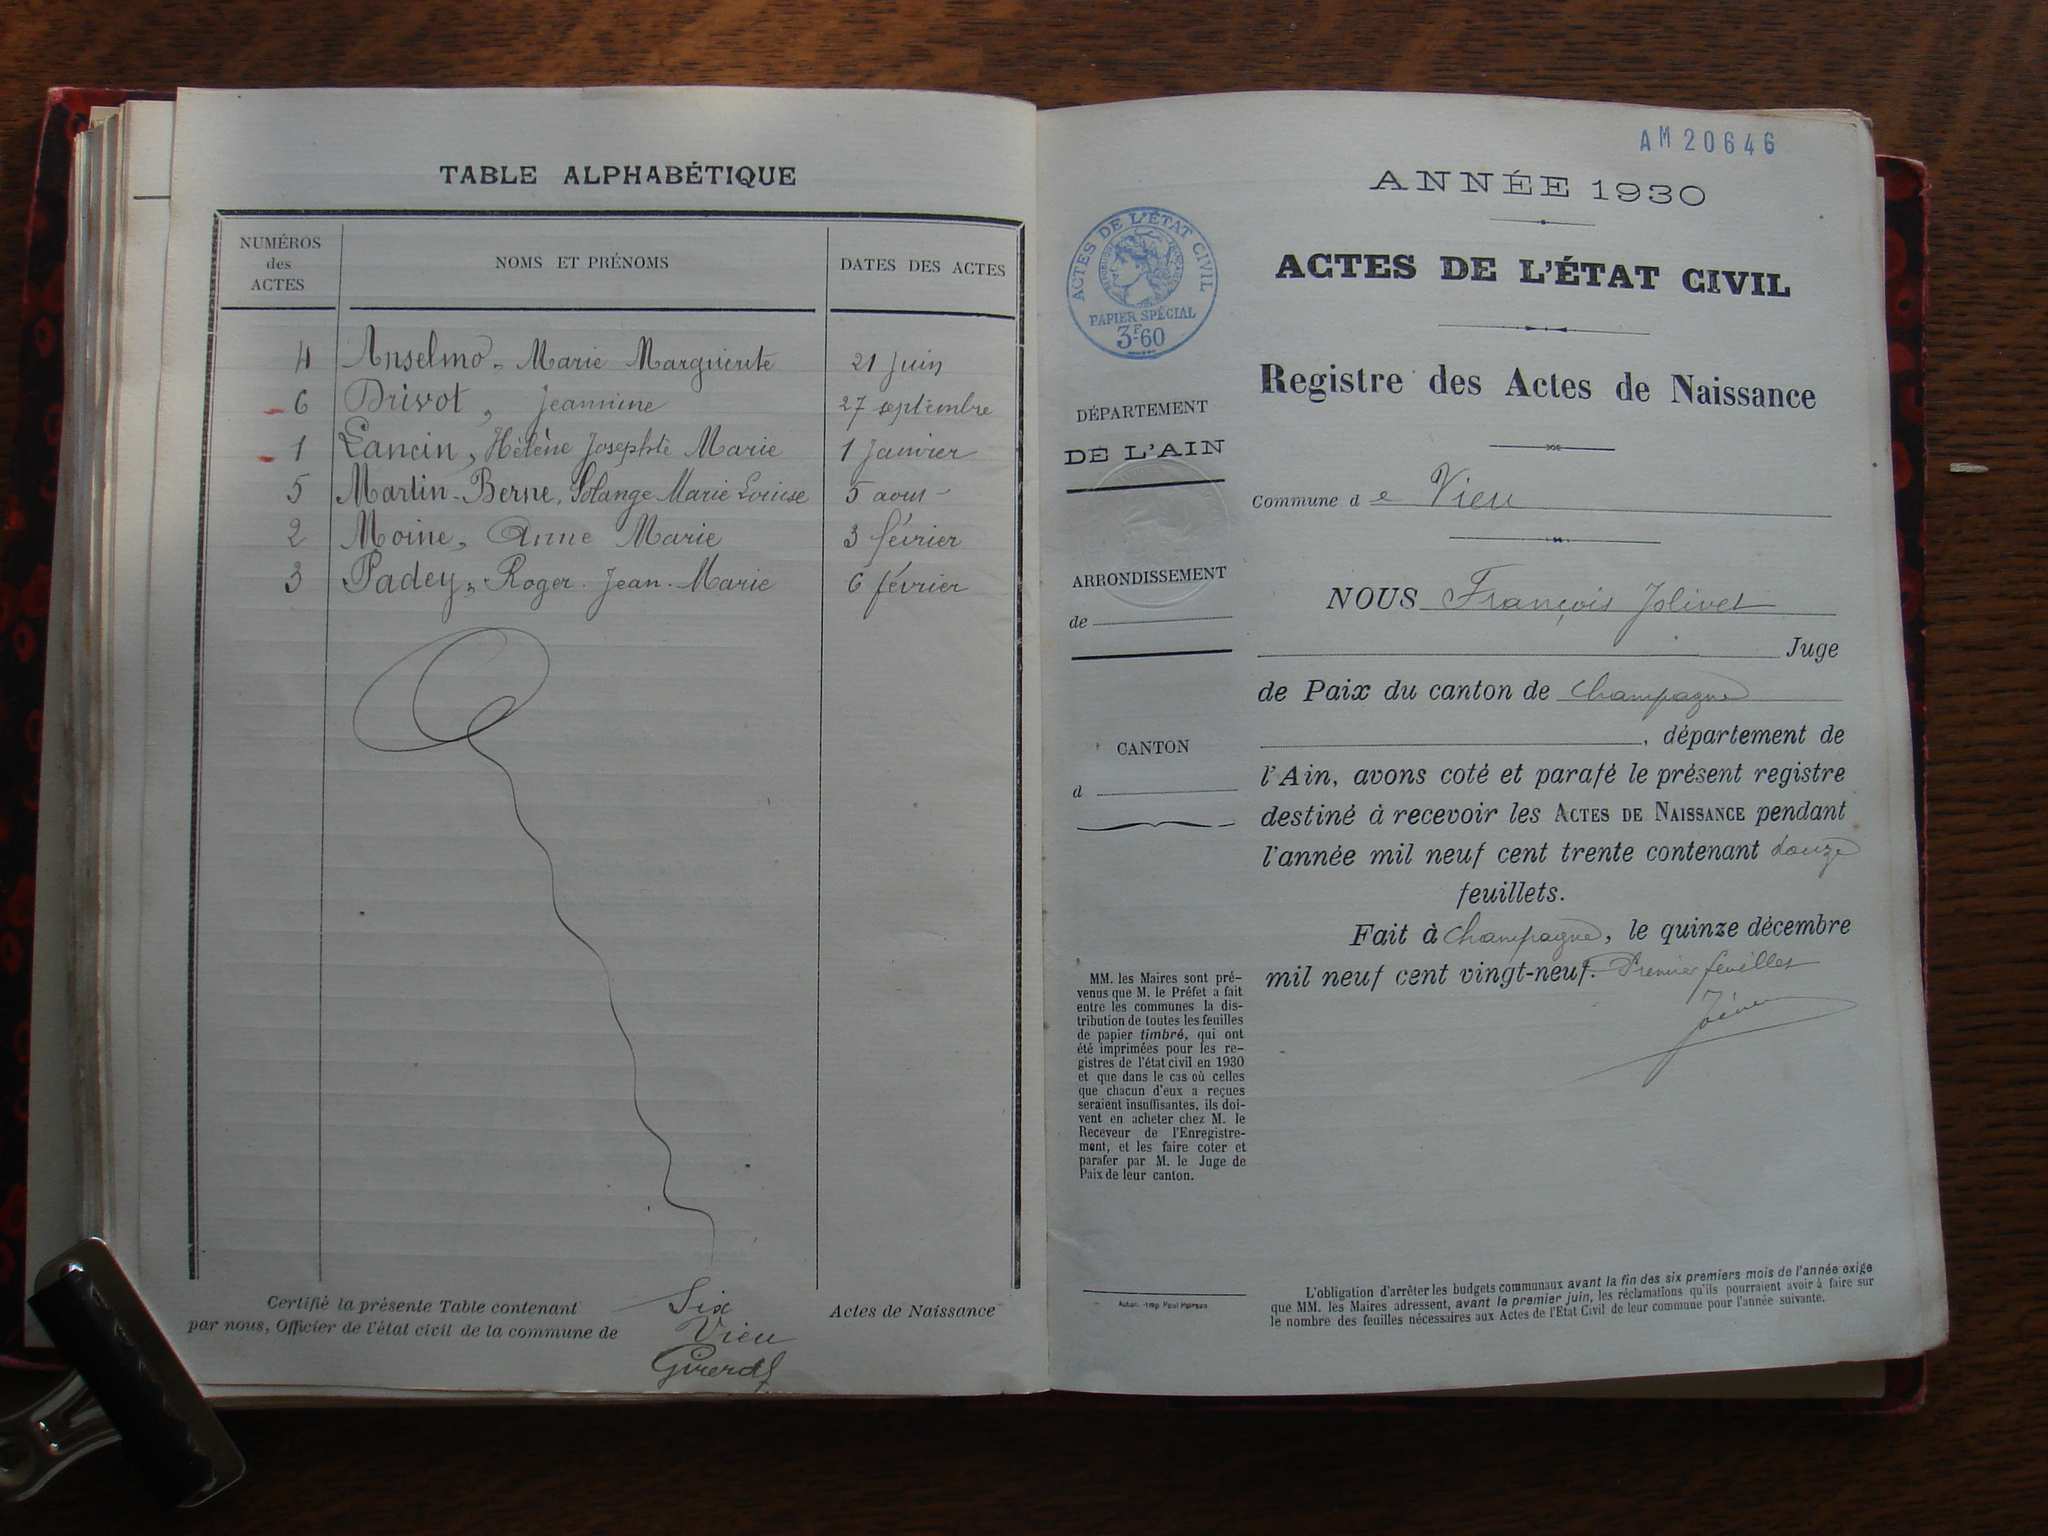 TABLE ALPHABÉTIQUE
NUMÉROS des ACTES NOMS ET PRÉNOMS DATES DES ACTES
4 Anselmo, Marie Marguerite 21 Juin
6 Drivot, Jeannine 27 septembre
1 Lancin, Hélène Josephte Marie 1 Janvier
5 Martin-Berne, Solange Marie Louise 5 aout
2 Moine, Anne Marie 3 février
3 Padey, Roger Jean-Marie 6 février
Certifié la présente Table contenant Six Actes de Naissance
par nous, Officier de l'état civil de la commune de Vieu
AM 20646
ANNÉE 1930
ACTES DE L'ÉTAT CIVIL
PAPIER SPÉCIAL
3F60
ACTES DE L'ÉTAT CIVIL
Registre des Actes de Naissance
DÉPARTEMENT
DE L'AIN
Commune de Vieu
ARRONDISSEMENT
de
CANTON
d
NOUS François Jolivet
Juge
de Paix du canton de Champagne
, département de
l'Ain, avons coté et parafé le présent registre
destiné à recevoir les ACTES DE NAISSANCE pendant
l'année mil neuf cent trente contenant douze
feuillets.
Fait à Champagne, le quinze décembre
mil neuf cent vingt-neuf. Premier feuillet
MM. les Maires sont pré-
venus que M. le Préfet a fait
entre les communes la dis-
tribution de toutes les feuilles
de papier timbré, qui ont
été imprimées pour les re-
gistres de l'état civil en 1930
et que dans le cas où celles
que chacun d'eux a reçues
seraient insuffisantes, ils doi-
vent en acheter chez M. le
Receveur de l'Enregistre-
ment, et les faire coter et
parafer par M. le Juge de
Paix de leur canton.
L'obligation d'arrêter les budgets communaux avant la fin des six premiers mois de l'année exige
que MM. les Maires adressent, avant le premier juin, les réclamations qu'ils pourraient avoir à faire sur
le nombre des feuilles nécessaires aux Actes de l'Etat Civil de leur commune pour l'année suivante.